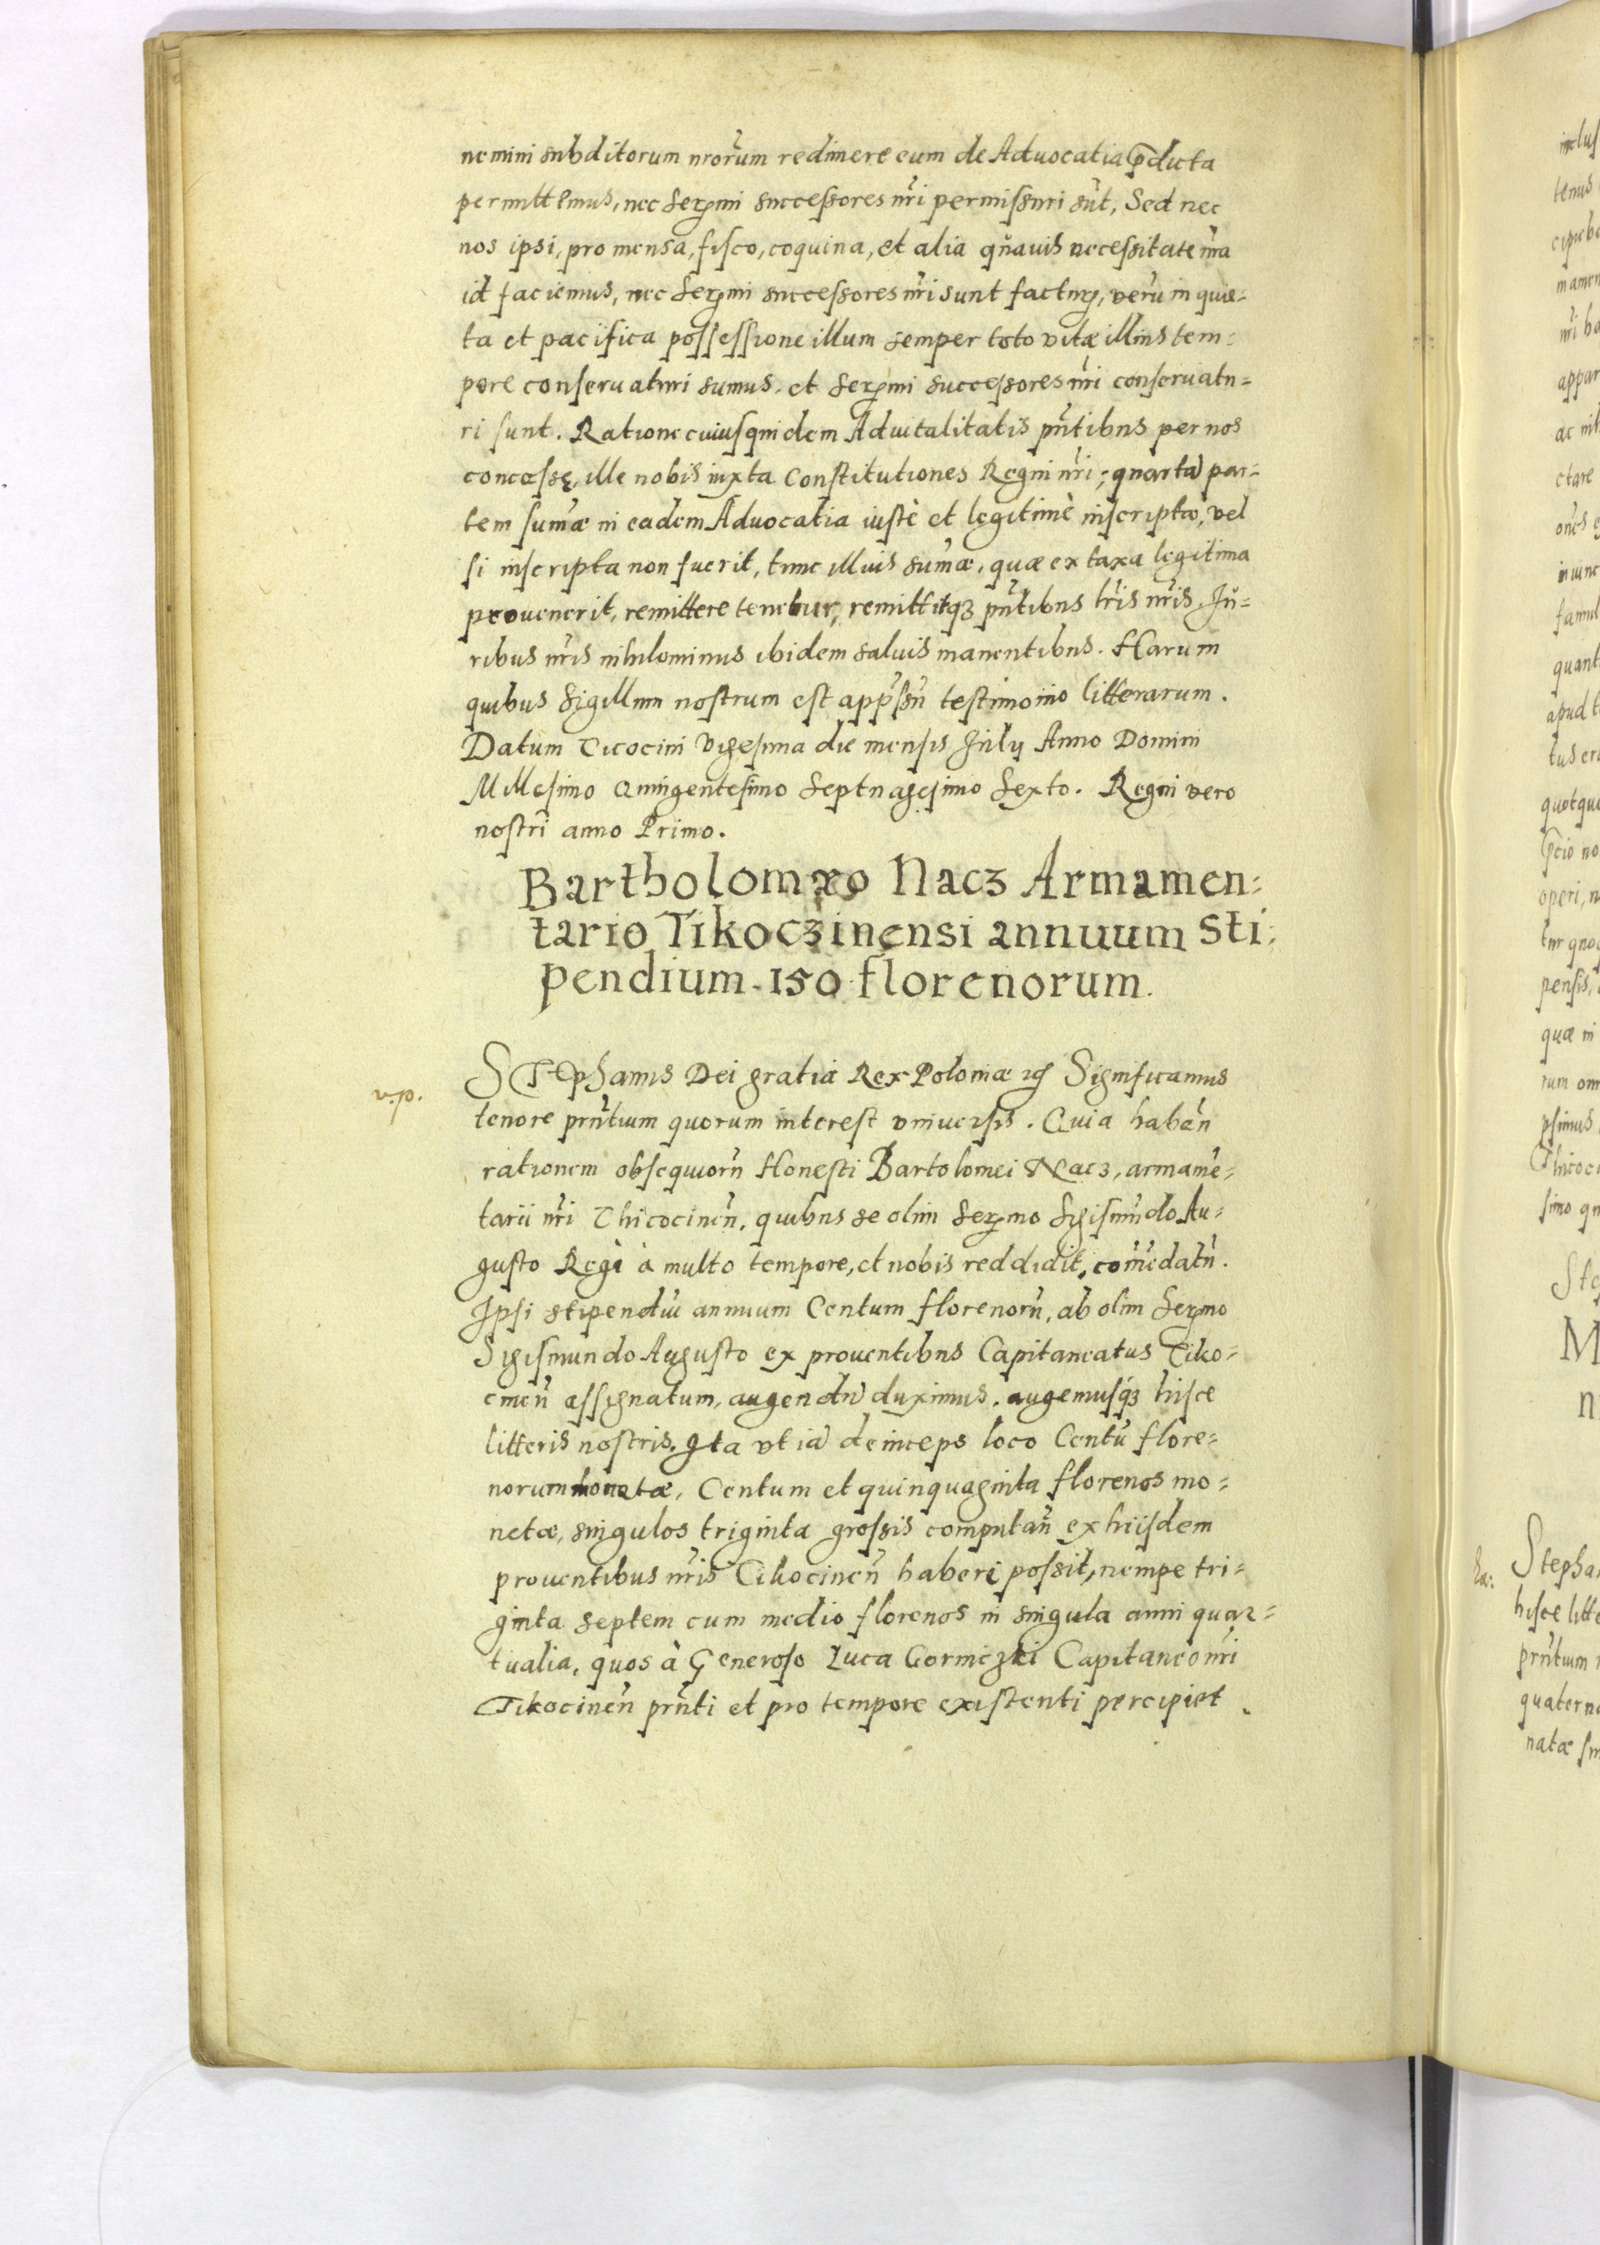 nemini subditorum nrorum redimere eum de Aduocatia pdicta
permittemus, nec Sermi successores nri permissuri sut, Sed nec
nos ipsi, pro mensa, fisco, coquina, et alia qnauis necessitate nra
id faciemus, nec Sermi successores nri sunt factur, veru in quie=
ta et pacifica possessione illum semper toto vitæ illius tem=
pore conseruaturi sumus. et Sermi successores nri conseruatu=
ri sunt. Ratione cuiusquidem Aduitalitatis pntibus per nos
concessę, ille nobis iuxta Constitutiones Regni nri; quarta par=
tem sumæ in eadem Aduocatia iustè et legitimè inscriptæ, vel
si inscripta non fuerit, tunc illius sumæ, quæ ex taxa legitima
prouenerit, remittere tenebitur, remittitqʒ pntibus lris nris. Iu=
ribus nris nihilominus ibidem saluis manentibus. Harum
quibus Sigillum nostrum est appssu testimonio litterarum.
Datum Ticocini vigesima die mensis Iulij Anno Domini
Millesimo Quingentesimo Septuagesimo Sexto. Regni vero
nostri anno Primo.
Bartholomæo Nacz Armamen=
tario Tikoczinensi annuum Sti=
pendium 150 florenorum.
v.p.
Stephanus Dei gratia Rex Poloniæ etc Significamus
tenore prntium quorum interest vniuersis. Quia haben
rationem obsequioru Honesti Bartolomei Nacz, armame=
tarii nri Thicocinen, quibus se olim Sermo Sigismudo Au=
gusto Regi à multo tempore, et nobis reddidit, comedatu.
Ipsi stipendiu annuum Centum florenoru, ab olim Sermo
Sigismundo Augusto ex prouentibus Capitaneatus Tiko=
cinen assignatum, augendu duximus. augemusqʒ hisce
litteris nostris. Ita vt ia deinceps loco Centu flore=
norum monetæ, Centum et quinquaginta florenos mo=
netæ, singulos triginta grossis computan ex hiisdem
prouentibus nris Tikocinen habere possit, nempe tri=
ginta septem cum medio florenos in singula anni quar=
tualia, quos à Generoso Luca Gorniczki Capitaneo nri
Tikocinen prnti et pro tempore existenti percipiet.